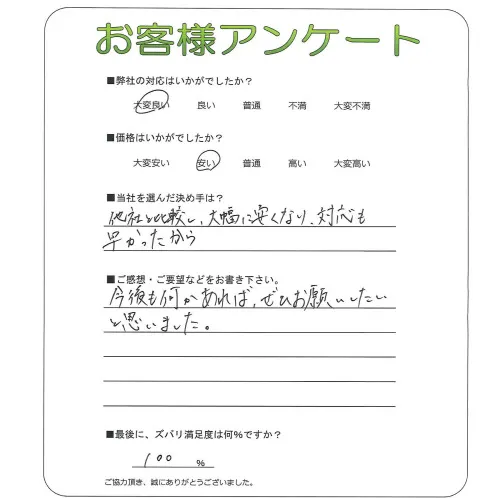 お客様アンケート
■弊社の対応はいかがでしたか?
大変良い 良い 普通 不満 大変不満
■価格はいかがでしたか?
大変安い 安い 普通 高い 大変高い
■当社を選んだ決め手は?
他社と比較し、大幅に安くなり、対応も
早かったから
■ご感想・ご要望などをお書き下さい。
今後も何かあれば、ぜひお願いしたい
と思いました。
■最後に、ズバリ満足度は何%ですか?
100 %
ご協力頂き、誠にありがとうございました。